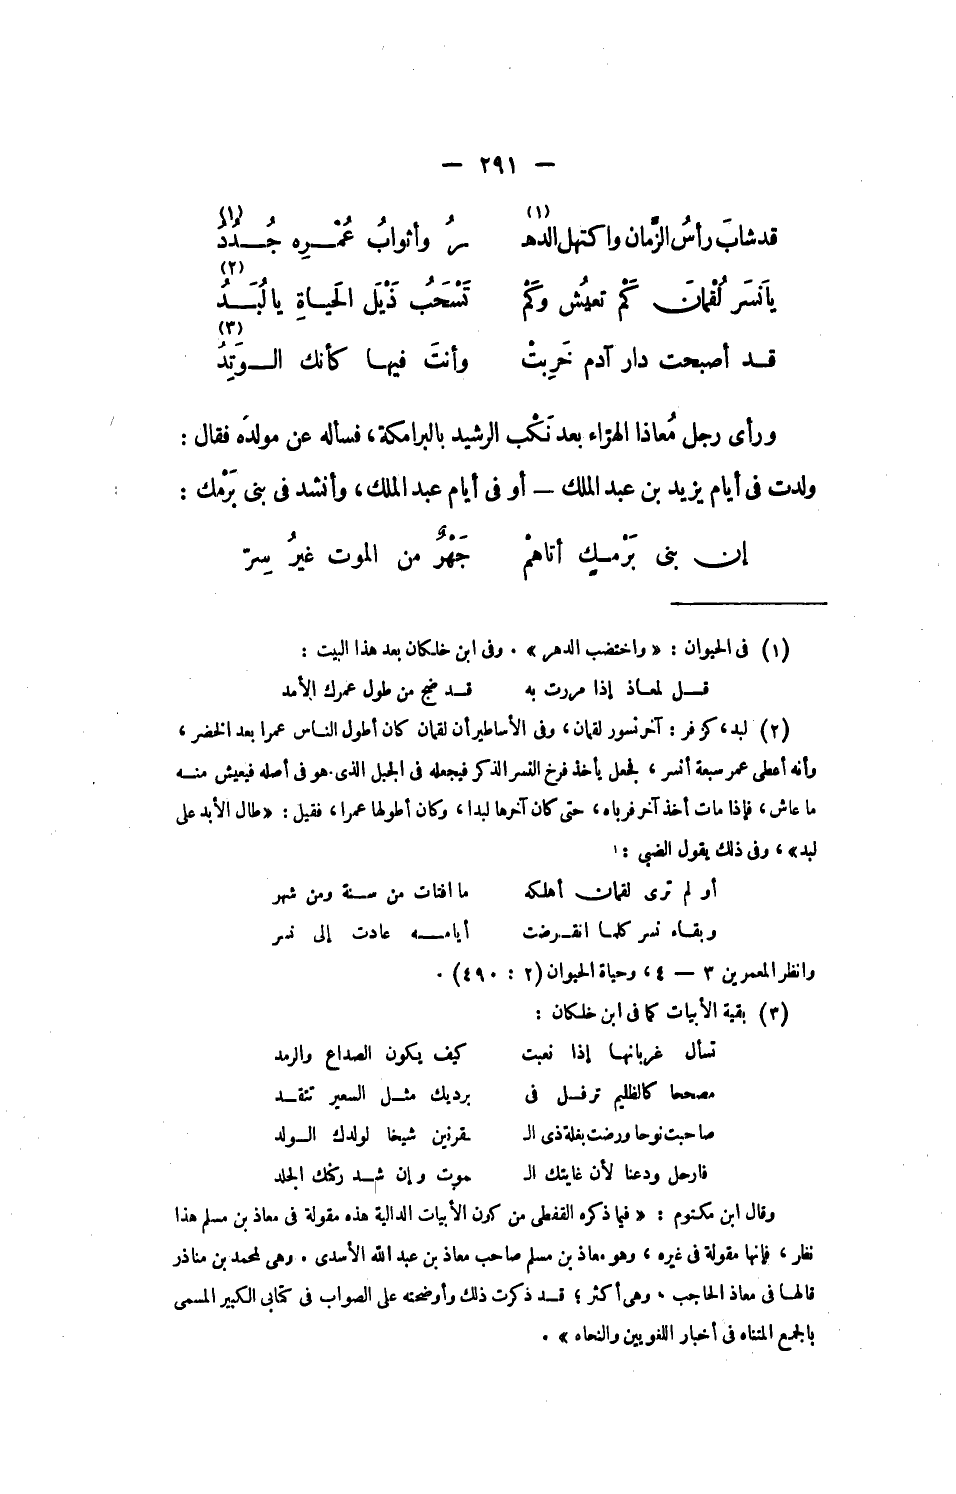 — ٢٩١ —
قد شابَ رأسُ الزَّمان واكتهل الدهـ (١) ـرُ وأثوابُ عُمْـــرِه جُـــدُدُ (١)
يانَسَر لُقْمانَ كَمْ تعيُش وكَمْ تَسْحَبُ ذَيْلَ الحَيــاةِ يالُبَــدُ (٢)
قــد أصبحت دار آدم خَرِبتْ وأنتَ فيهــا كأنك الــوَتِدُ (٣)
ورأى رجل مُعاذا الهرّاء بعد نَكْب الرشيد بالبرامكة، فسأله عن مولده فقال :
ولدت فى أيام يزيد بن عبد الملك — أو فى أيام عبد الملك، وأنشد فى بنى بَرْمك :
إن بنى بَرْمــكٍ أتاهمْ جَهْرٌ من الموت غيرُ سِرّ
(١) فى الحيوان : « واختضب الدهر » . وفى ابن خلكان بعد هذا البيت :
قــل لمعاذ إذا مررت به قــد ضج من طول عمرك الأمد
(٢) لبد، كزفر : آخر نسور لقمان، وفى الأساطير أن لقمان كان أطول النــاس عمرا بعد الخضر ،
وأنه أعطى عمر سبعة أنسر ، فجعل يأخذ فرخ النسر الذكر فيجعله فى الجبل الذى هو فى أصله فيعيش منــه
ما عاش، فإذا مات أخذ آخر فرباه، حتى كان آخرها لبدا ، وكان أطولها عمرا ، فقيل : «طال الأبد على
لبد» ، وفى ذلك يقول الضبي :
أو لم ترى لقمان أهلكه ما اقتات من ســنة ومن شهر
وبقــاء نسر كلمــا انقــرضت أيامــــه عادت إلى نسر
وانظر المعمرين ٣ — ٤، وحياة الحيوان (٢ : ٤٩٠) .
(٣) بقية الأبيات كما فى ابن خلكان :
تسأل غربانهــا إذا نعبت كيف يكون الصداع والرمد
مصححا كالظليم ترفــل فى برديك مثــل السعير تتقــد
صاحبت نوحا ورضت بغلة ذى الـ ـقرنين شيخا لولدك الــولد
فارحل ودعنا لأن غايتك الـ ـموت وإن شــد ركنك الجلد
وقال ابن مكتوم : « فيما ذكره القفطى من كون الأبيات الدالية هذه مقولة فى معاذ بن مسلم هذا
نظر ، فإنها مقولة فى غيره ، وهو معاذ بن مسلم صاحب معاذ بن عبد الله الأسدى . وهى لمحمد بن مناذر
قالهــا فى معاذ الحاجب . وهى أكثر ؛ قــد ذكرت ذلك وأوضحته على الصواب فى كتابى الكبير المسمى
بالجمع المتناه فى أخبار اللغويين والنحاه » .